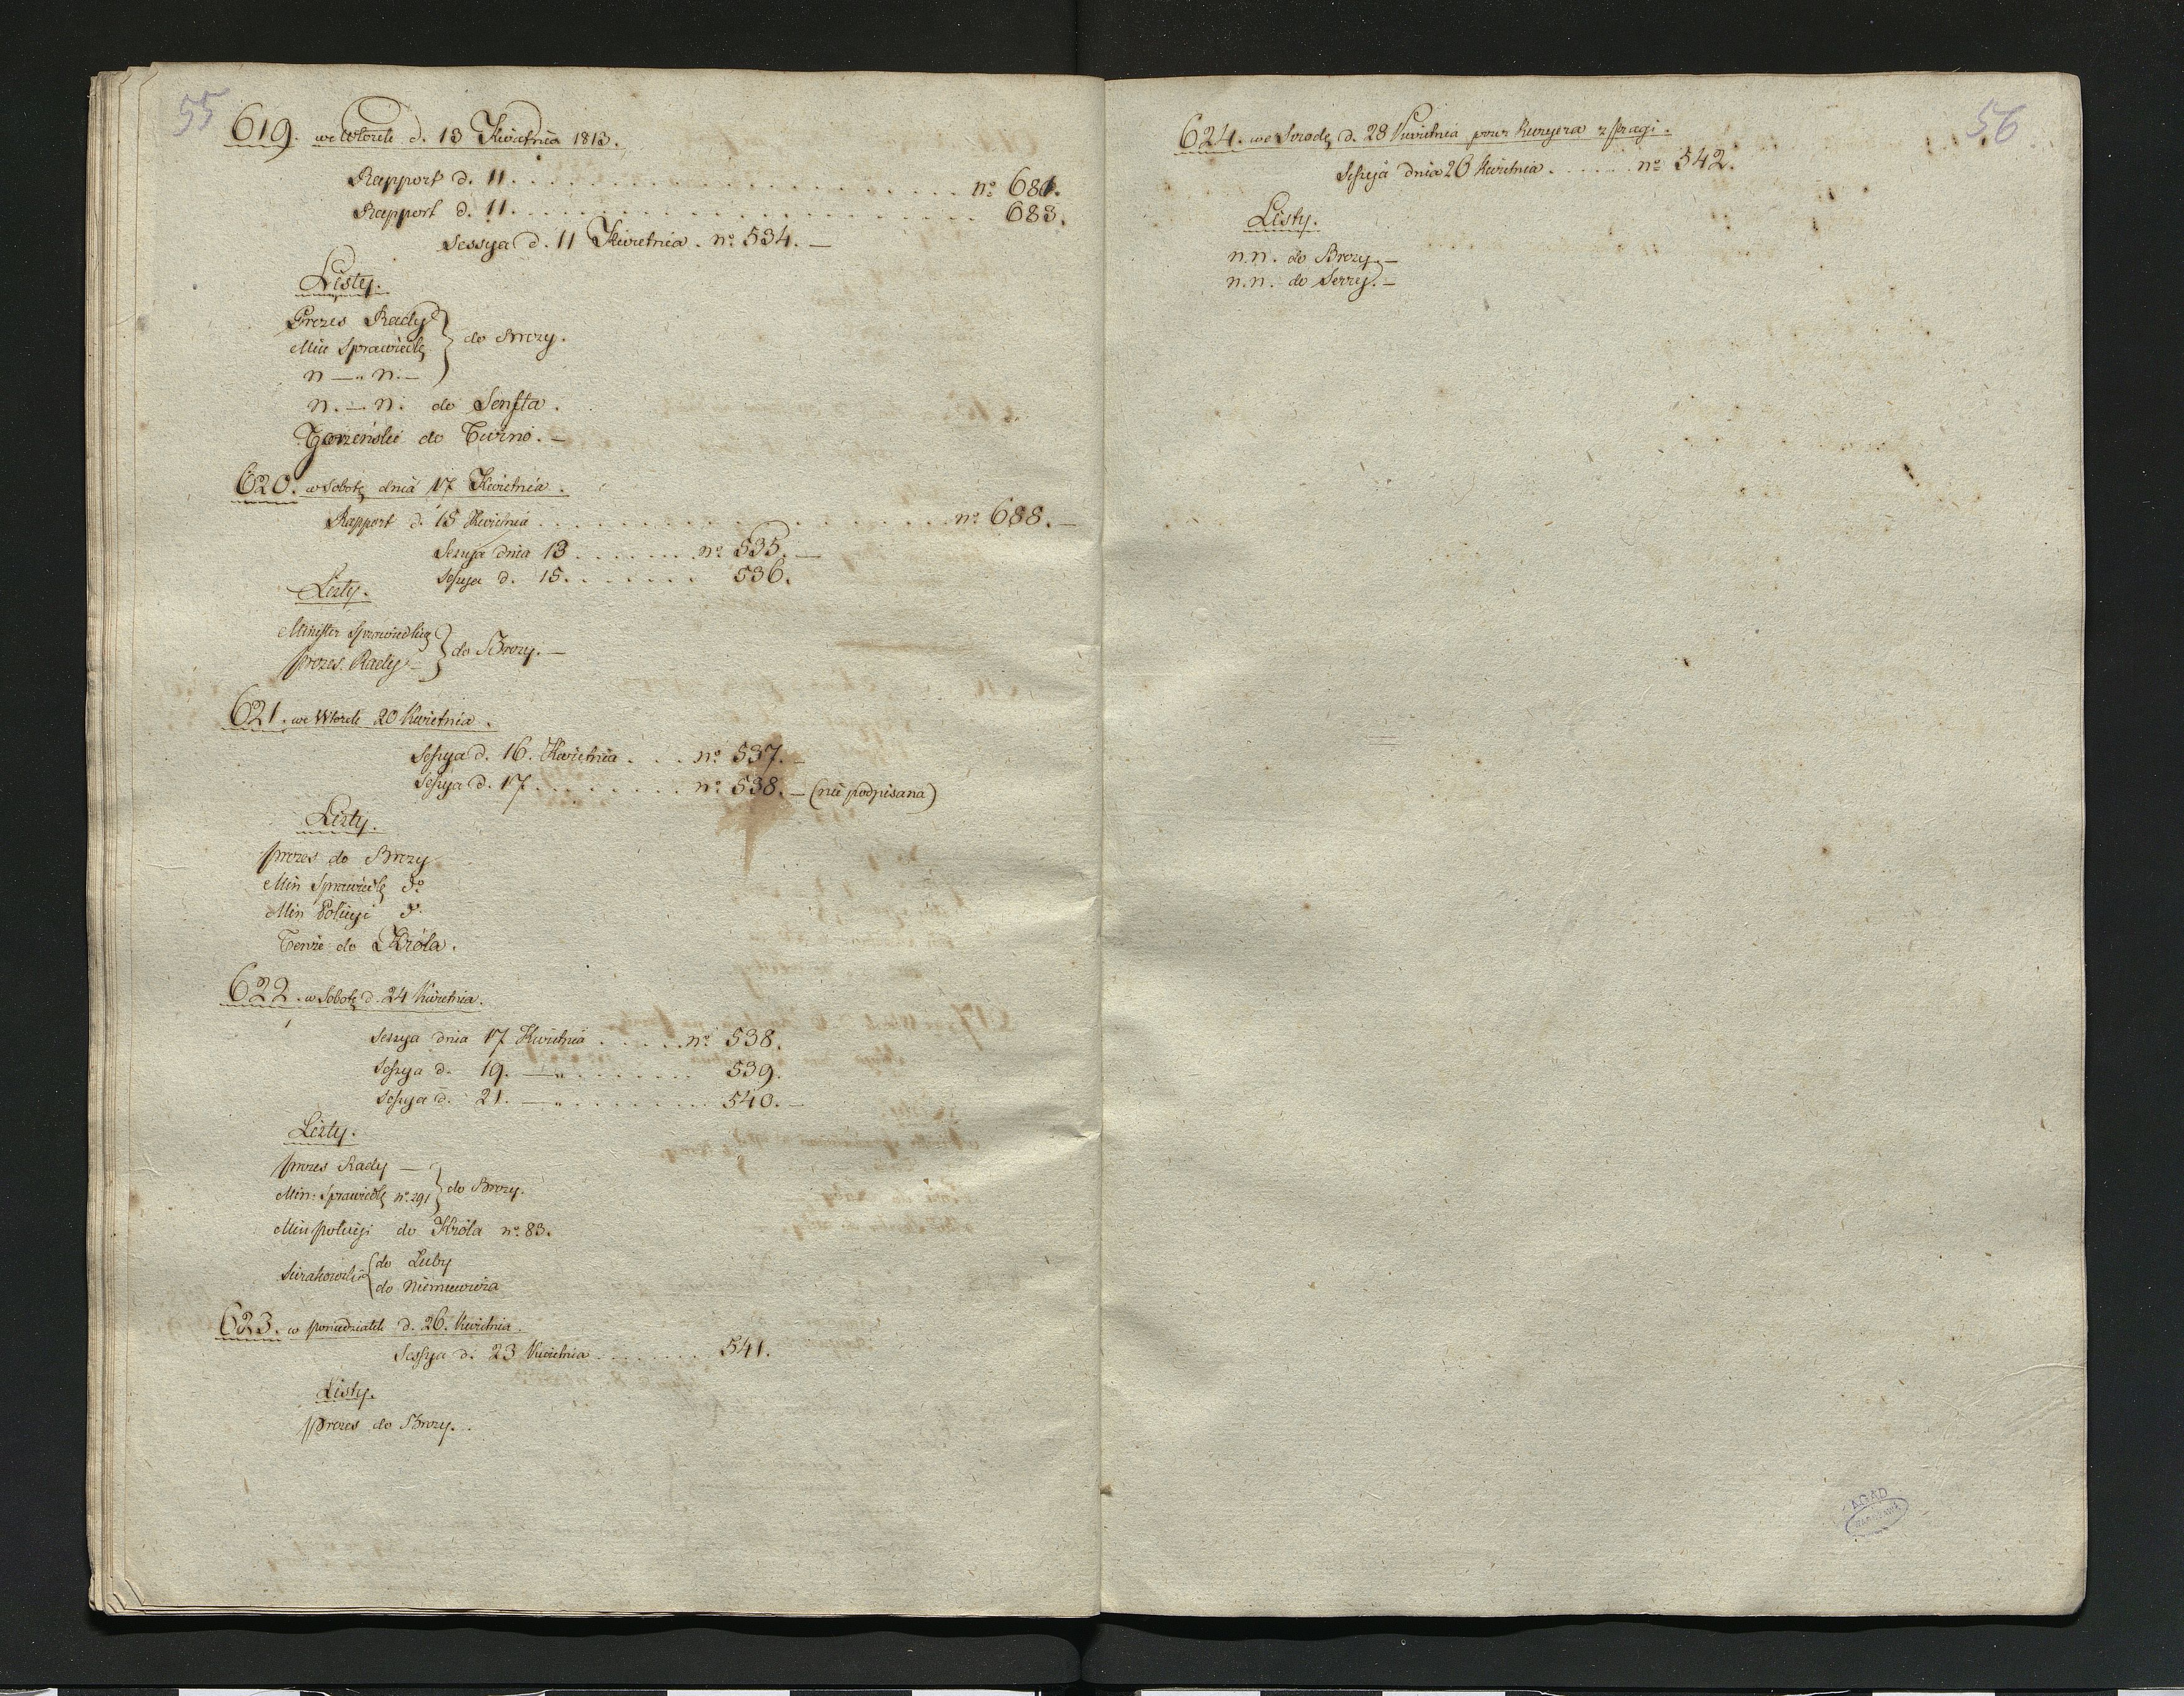 55
619. we Wtorek d. 13 Kwietnia 1813.
Rapport d. 11. . . . . . . . . . . . . . . . . . . . . . . . n° 681.
Rapport d. 11. . . . . . . . . . . . . . . . . . . . . . . . 683.
Sessya d. 11 Kwietnia. n° 534. —
Listy.
Prezes Rady
Min Sprawiedlę } do Brezy.
n —„ n. —
n. — n. do Senfta.
Gorzeński do Turno. —
620. w Sobotę dnia 17 Kwietnia.
Rapport d. 15 Kwietnia . . . . . . . . . . . . . . . . . . n° 688. —
Sessya dnia 13 . . . . . . . n° 535. —
Sessya d. 15. . . . . . . 536.
Listy.
Minister Sprawiedlię
prezes Rady — } do Brezy. —
621. we Wtorek 20 Kwietnia.
Sessya d. 16. Kwietnia . . . n° 537. —
Sessya d. 17. . . . . . . . n° 538. — (nie podpisana)
Listy.
prezes do Brezy
Min Sprawiedlę d°
Min Policyi d°
Tenże do Króla.
622. w Sobotę d. 24 Kwietnia.
Sessya dnia 17 Kwietnia . . . . . n° 538.
Sessya d. 19. —„ . . . . . . . 539.
Sessya d. 21. —„ . . . . . . . . 540. —
Listy.
prezes Rady —
Min: Sprawiedlę n° 291 } do Brezy.
Min policyi do Króla n° 83.
Sierakowski { do Luby
do Niemcewicza
623. w poniedziałek d. 26. Kwietnia.
Sessya d. 23 Kwietnia . . . . . . . 541.
Listy.
prezes do Brezy. .
56
624. we Srodę d. 28 Kwietnia przez Kuryera z pragi.
Sessyą dnia 26 Kwietnia . . . . . . n° 542.
Listy.
n. n. do Brezy. —
n. n. do Serry. —
AGAD
WARSZAWA